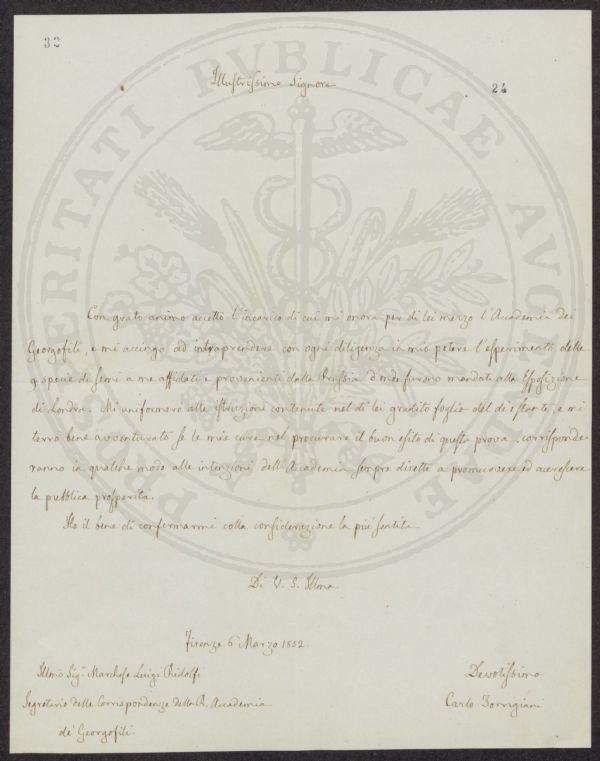 32
24
Illustrissimo Signore
Con grato animo accetto l'incarico di cui mi onora per di lei mezzo l'Accademia dei
Georgofili, e mi accingo ad intraprendere con ogni diligenza in mio potere l'esperimento delle
9 specie di semi a me affidati e provenienti dalla Prussia donde furono mandate alla Esposizione
di Londra. Mi uniformerò alle istruzioni contenute nel di lei gradito foglio del dì spirante, e mi
terrò bene avventurato se le mie cure nel procurare il buon esito di questa prova, corrisponde-
ranno in qualche modo alle intenzioni dell'Accademia sempre dirette a promuovere ed accrescere
la pubblica prosperità.
Ho il bene di confermarmi colla considerazione la più sentita
Di V. S. Illma
Firenze 6 Marzo 1852
Illmo Sigr Marchese Luigi Ridolfi
Segretario delle Corrispondenze della R. Accademia
de' Georgofili
Devotissimo
Carlo Torrigiani
PROSPERITATI PUBLICAE AUGENDAE